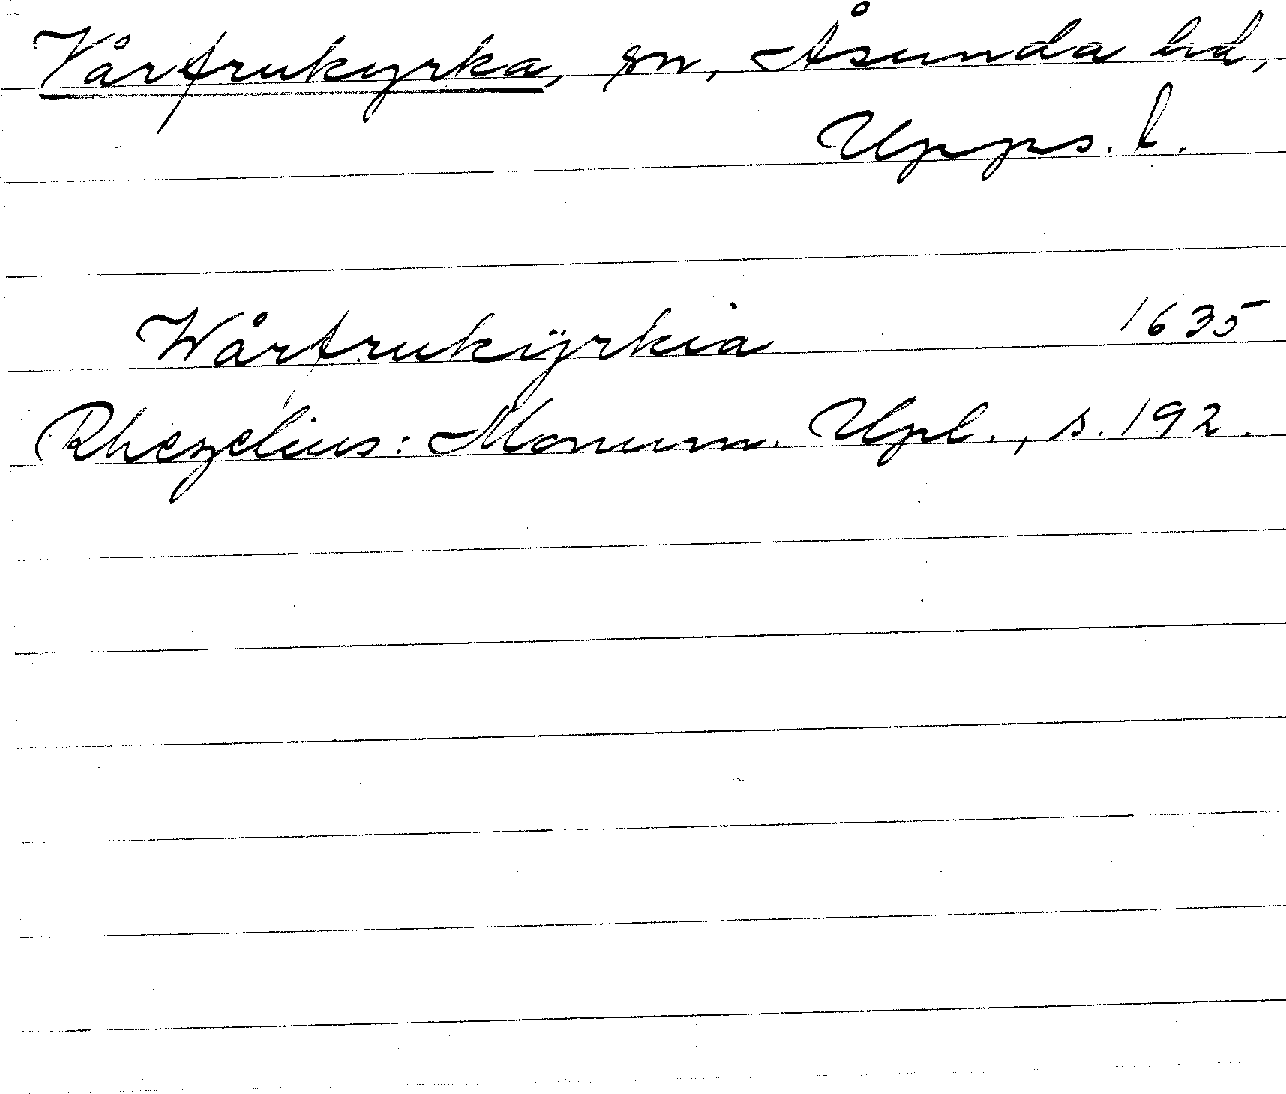 Vårfrukyrka, sn, Åsunda hd,
Upps. l.
Wårfrukÿrkia 1635
Rhezelius: Monum. Upl., s. 192.